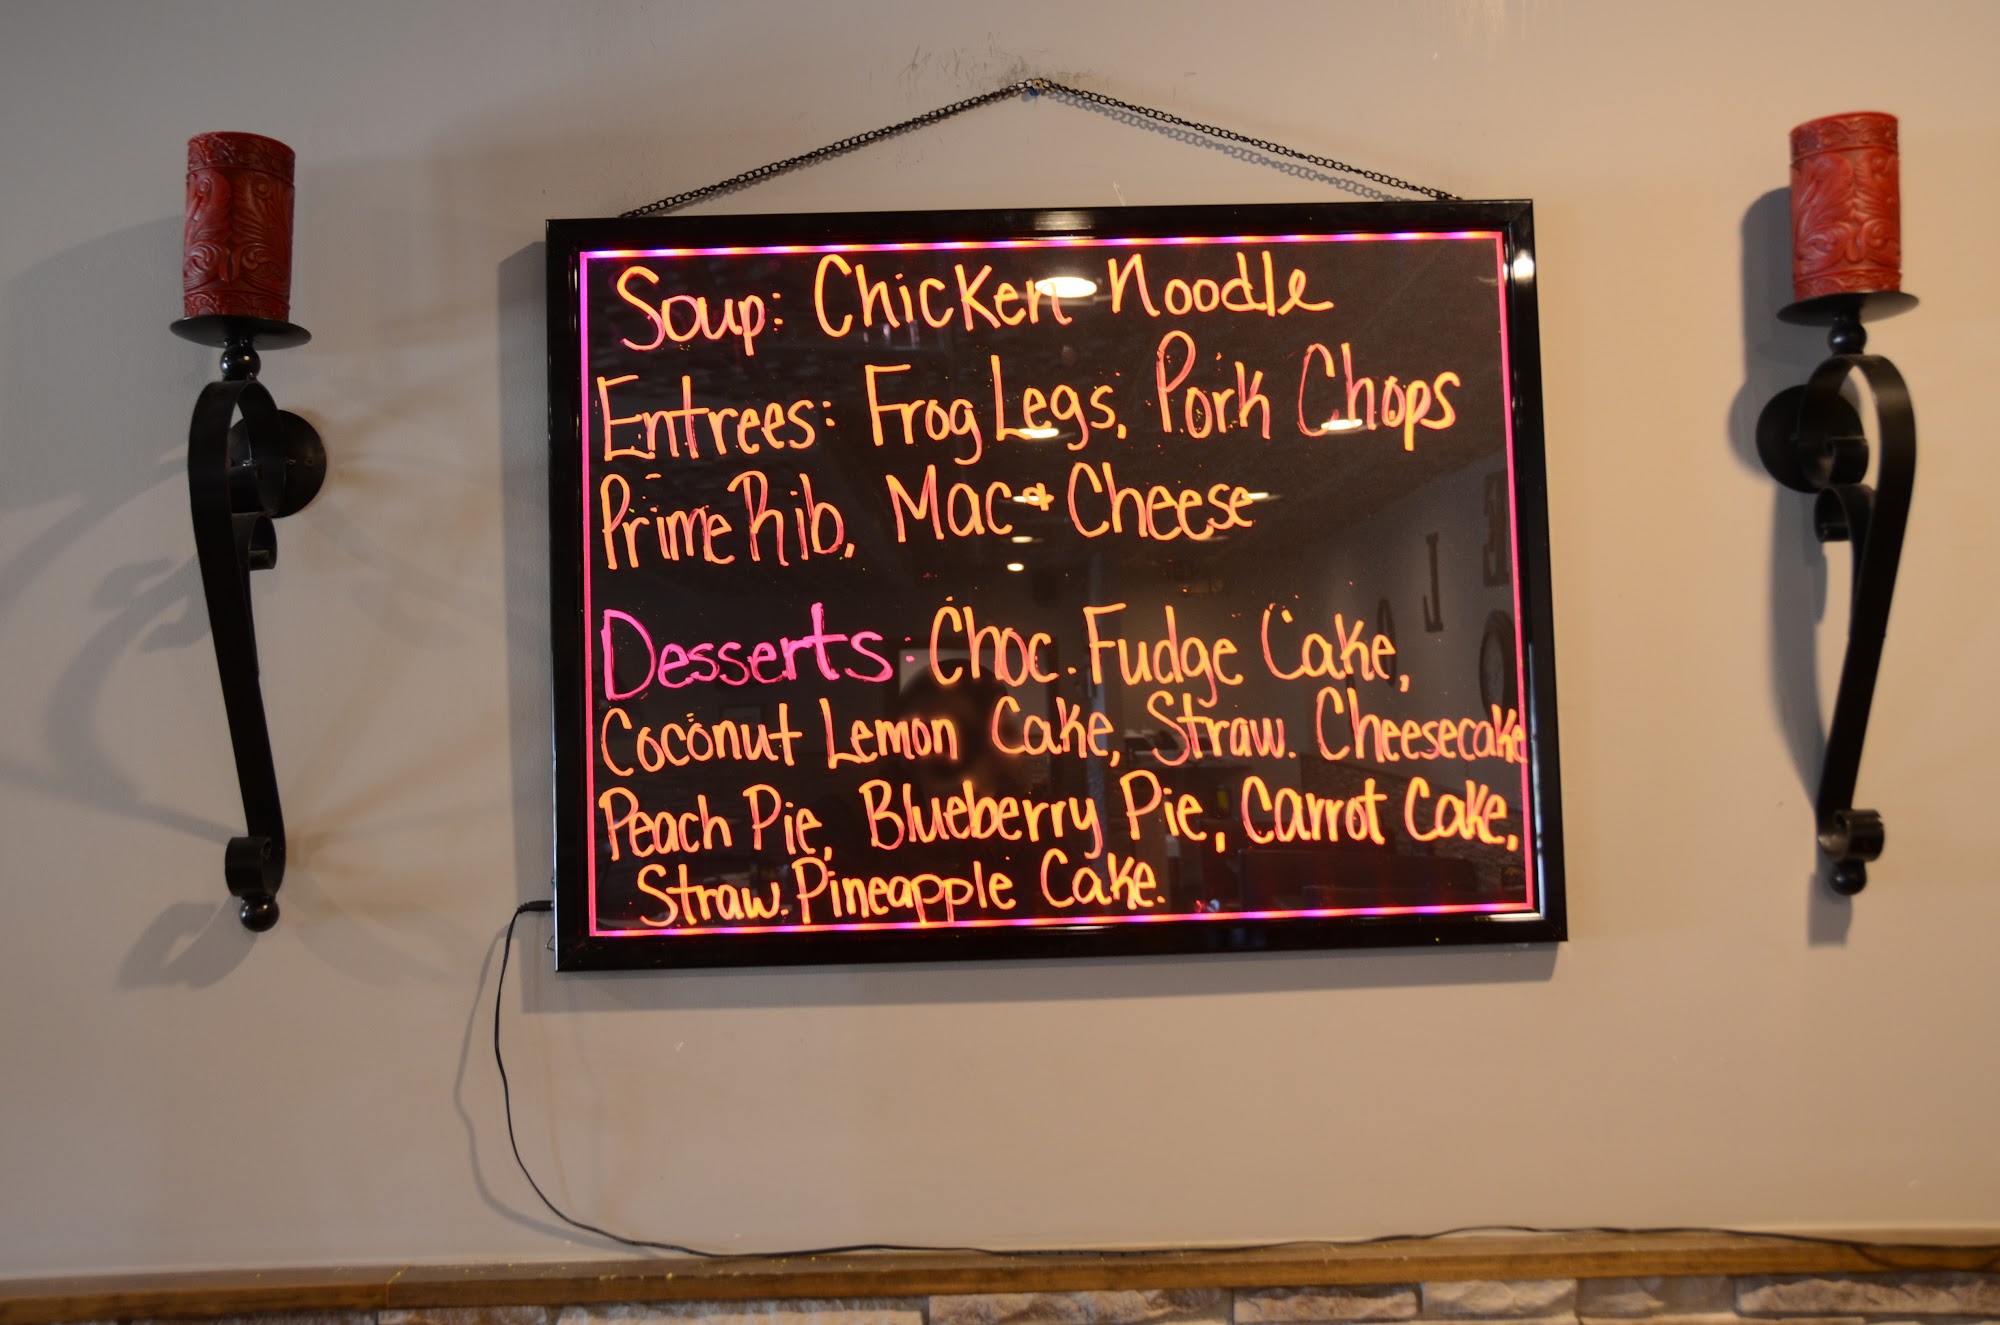 Soup: Chicken Noodle
Entrees: Frog Legs, Pork Chops
Prime Rib, Mac & Cheese
Desserts: Choc. Fudge Cake,
Coconut Lemon Cake, Straw. Cheesecake
Peach Pie, Blueberry Pie, Carrot Cake,
Straw. Pineapple Cake.